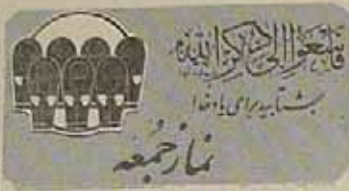 فاسعوا الی ذکر الله
بشتابید برای یاد خدا
نماز جمعه